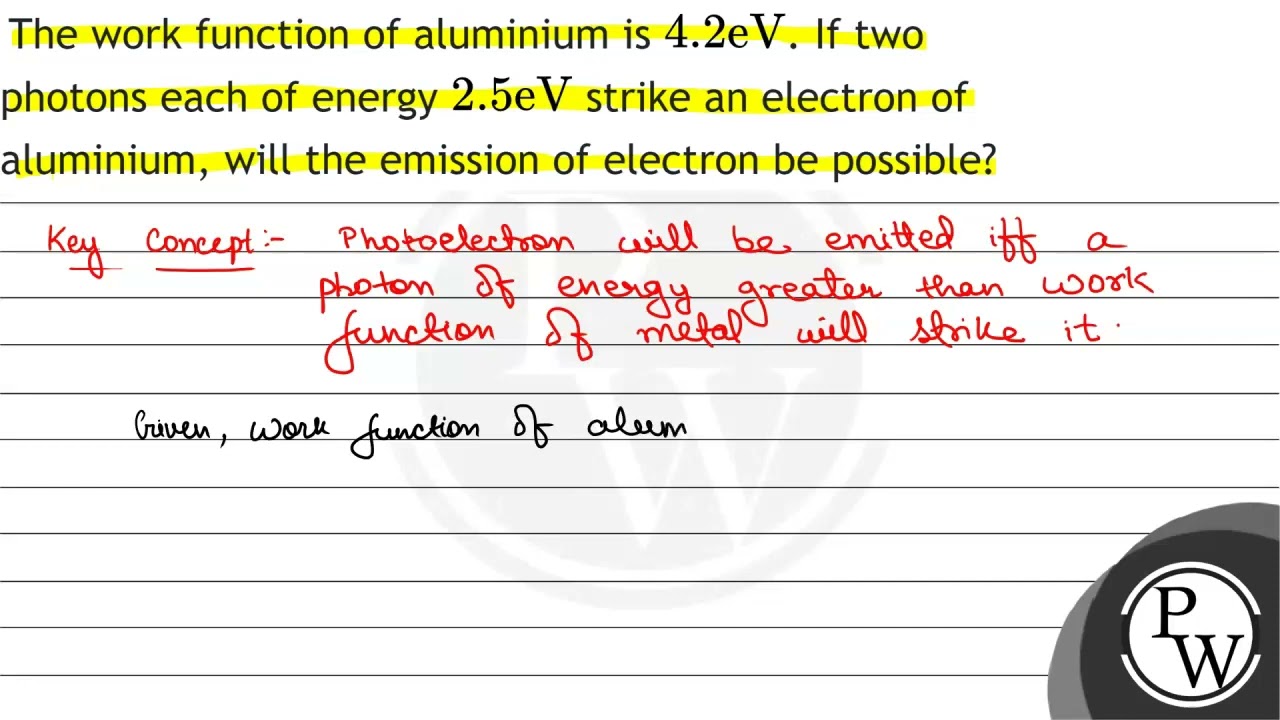 The work function of aluminium is 4.2eV. If two
photons each of energy 2.5eV strike an electron of
aluminium, will the emission of electron be possible?
Key Concept:- Photoelectron will be emitted iff a
photon of energy greater than work
function of metal will strike it.
Given, work function of alum
P
W
PW